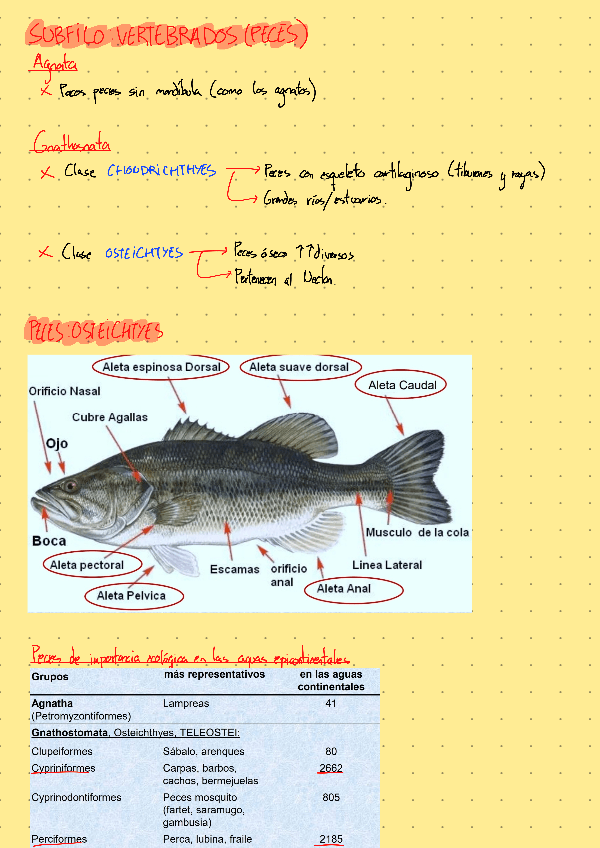 SUBFILO VERTEBRADOS (PECES)
Agnata
x Pocos peces sin mandíbula (como los agnatos)
Gnathosnata
x Clase CHOUDRICHTHYES → Peces con esqueleto cartilaginoso (tiburones y rayas)
→ Grandes ríos/estuarios.
x Clase OSTEICHTYES → Peces óseos ↑↑diversos
→ Pertenecen al Necton.
PECES OSTEICHTYES
Aleta espinosa Dorsal
Aleta suave dorsal
Aleta Caudal
Orificio Nasal
Cubre Agallas
Ojo
Boca
Musculo de la cola
Aleta pectoral
Escamas
orificio
anal
Linea Lateral
Aleta Pelvica
Aleta Anal
Peces de importancia ecológica en las aguas epicontinentales
Grupos más representativos en las aguas
continentales
Agnatha Lampreas 41
(Petromyzontiformes)
Gnathostomata, Osteichthyes, TELEOSTEI:
Clupeiformes Sábalo, arenques 80
Cypriniformes Carpas, barbos, 2662
cachos, bermejuelas
Cyprinodontiformes Peces mosquito 805
(fartet, saramugo,
gambusia)
Perciformes Perca, lubina, fraile 2185